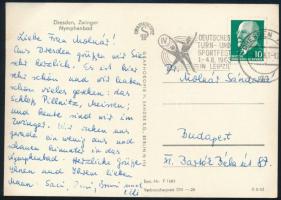 Dresden, Zwinger
Nymphenbad
Liebe Frau Molnár!
Aus Dresden grüßen wir Sie
sehr herzlich. Es ist hier
sehr schön und wir haben
schon vieles gesehen: das
Schloß Pillnitz, Meissen;
und heute sind wir im
Zwinger. Wir ruhen uns
gerade ein wenig aus und
schauen hinunter in das
Nymphenbad. Herzliche Grüße
Ihnen und Ihrem lieben
Mann.
DEUTSCHES
TURN- UND
SPORTFEST
1.-4.8. 1963
IN LEIPZIG
IV
10
Dr. Molnár Sándorné
Budapest
XI. Bartók Béla út 87.
Best. Nr. F 1683